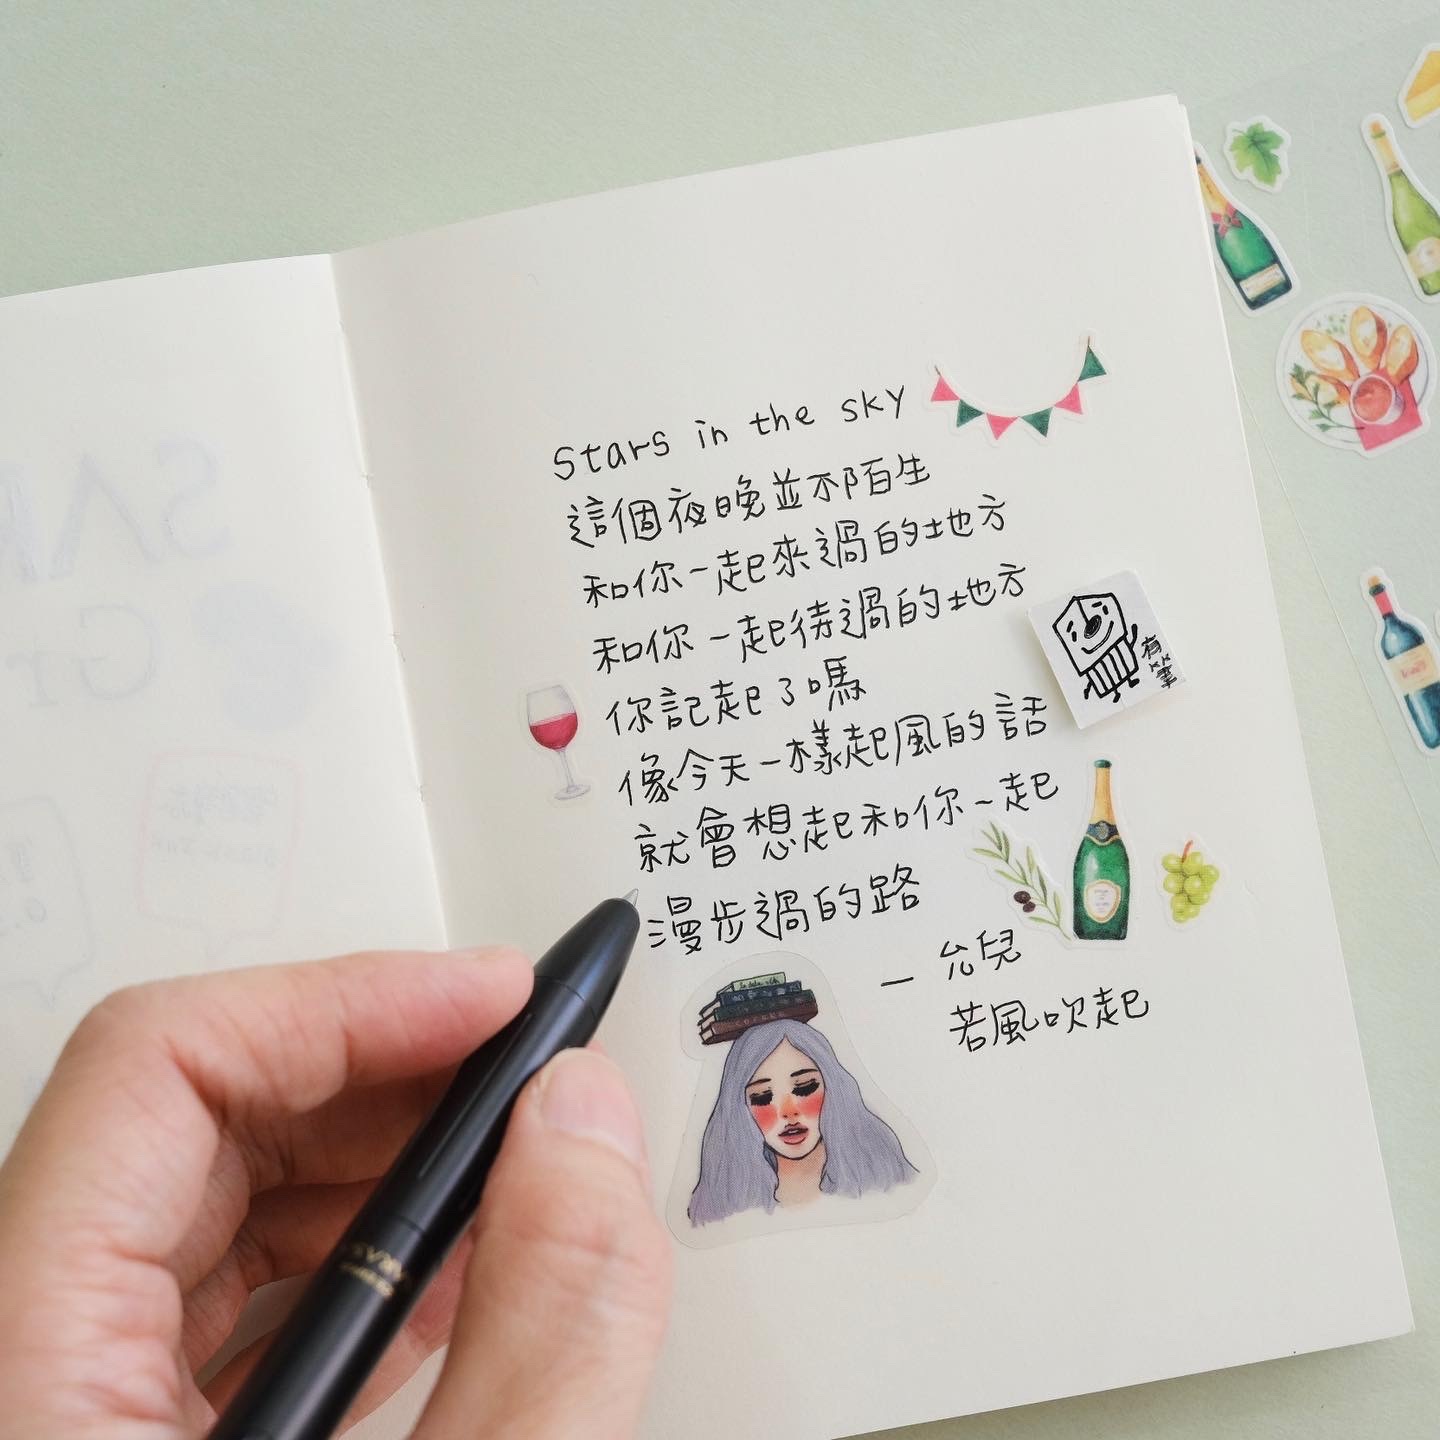 Stars in the sky
這個夜晚並不陌生
和你一起來過的地方
和你一起待過的地方
你記起了嗎
像今天一樣起風的話
就會想起和你一起
漫步過的路
— 允兒
若風吹起
有筆